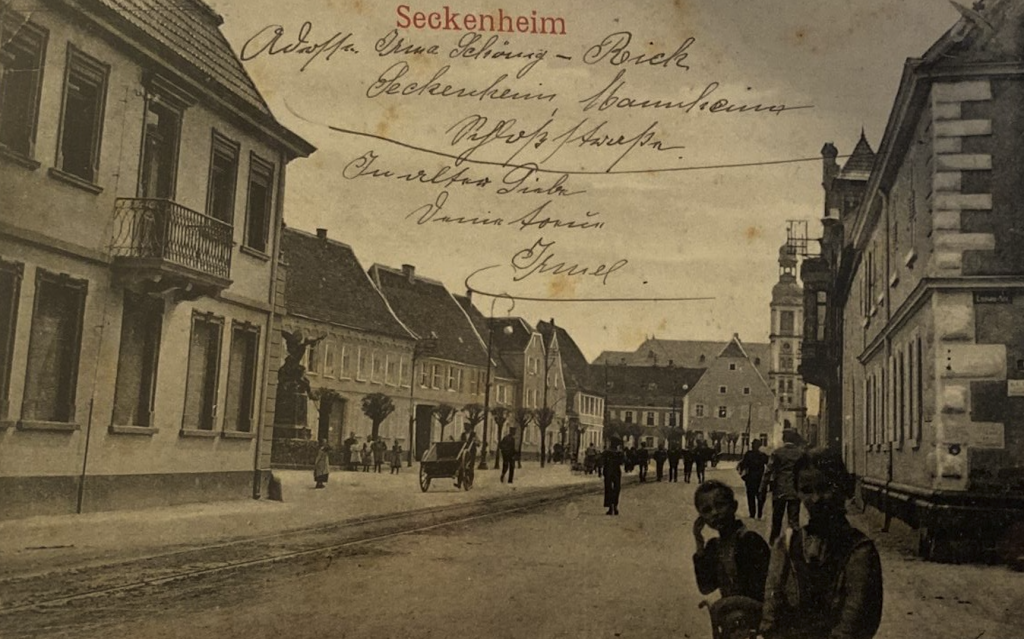 Seckenheim
Adresse Irma Schönig - Rick
Seckenheim, Mannheim
Schloßstraße.
In alter Liebe
Deine treue
Irmel